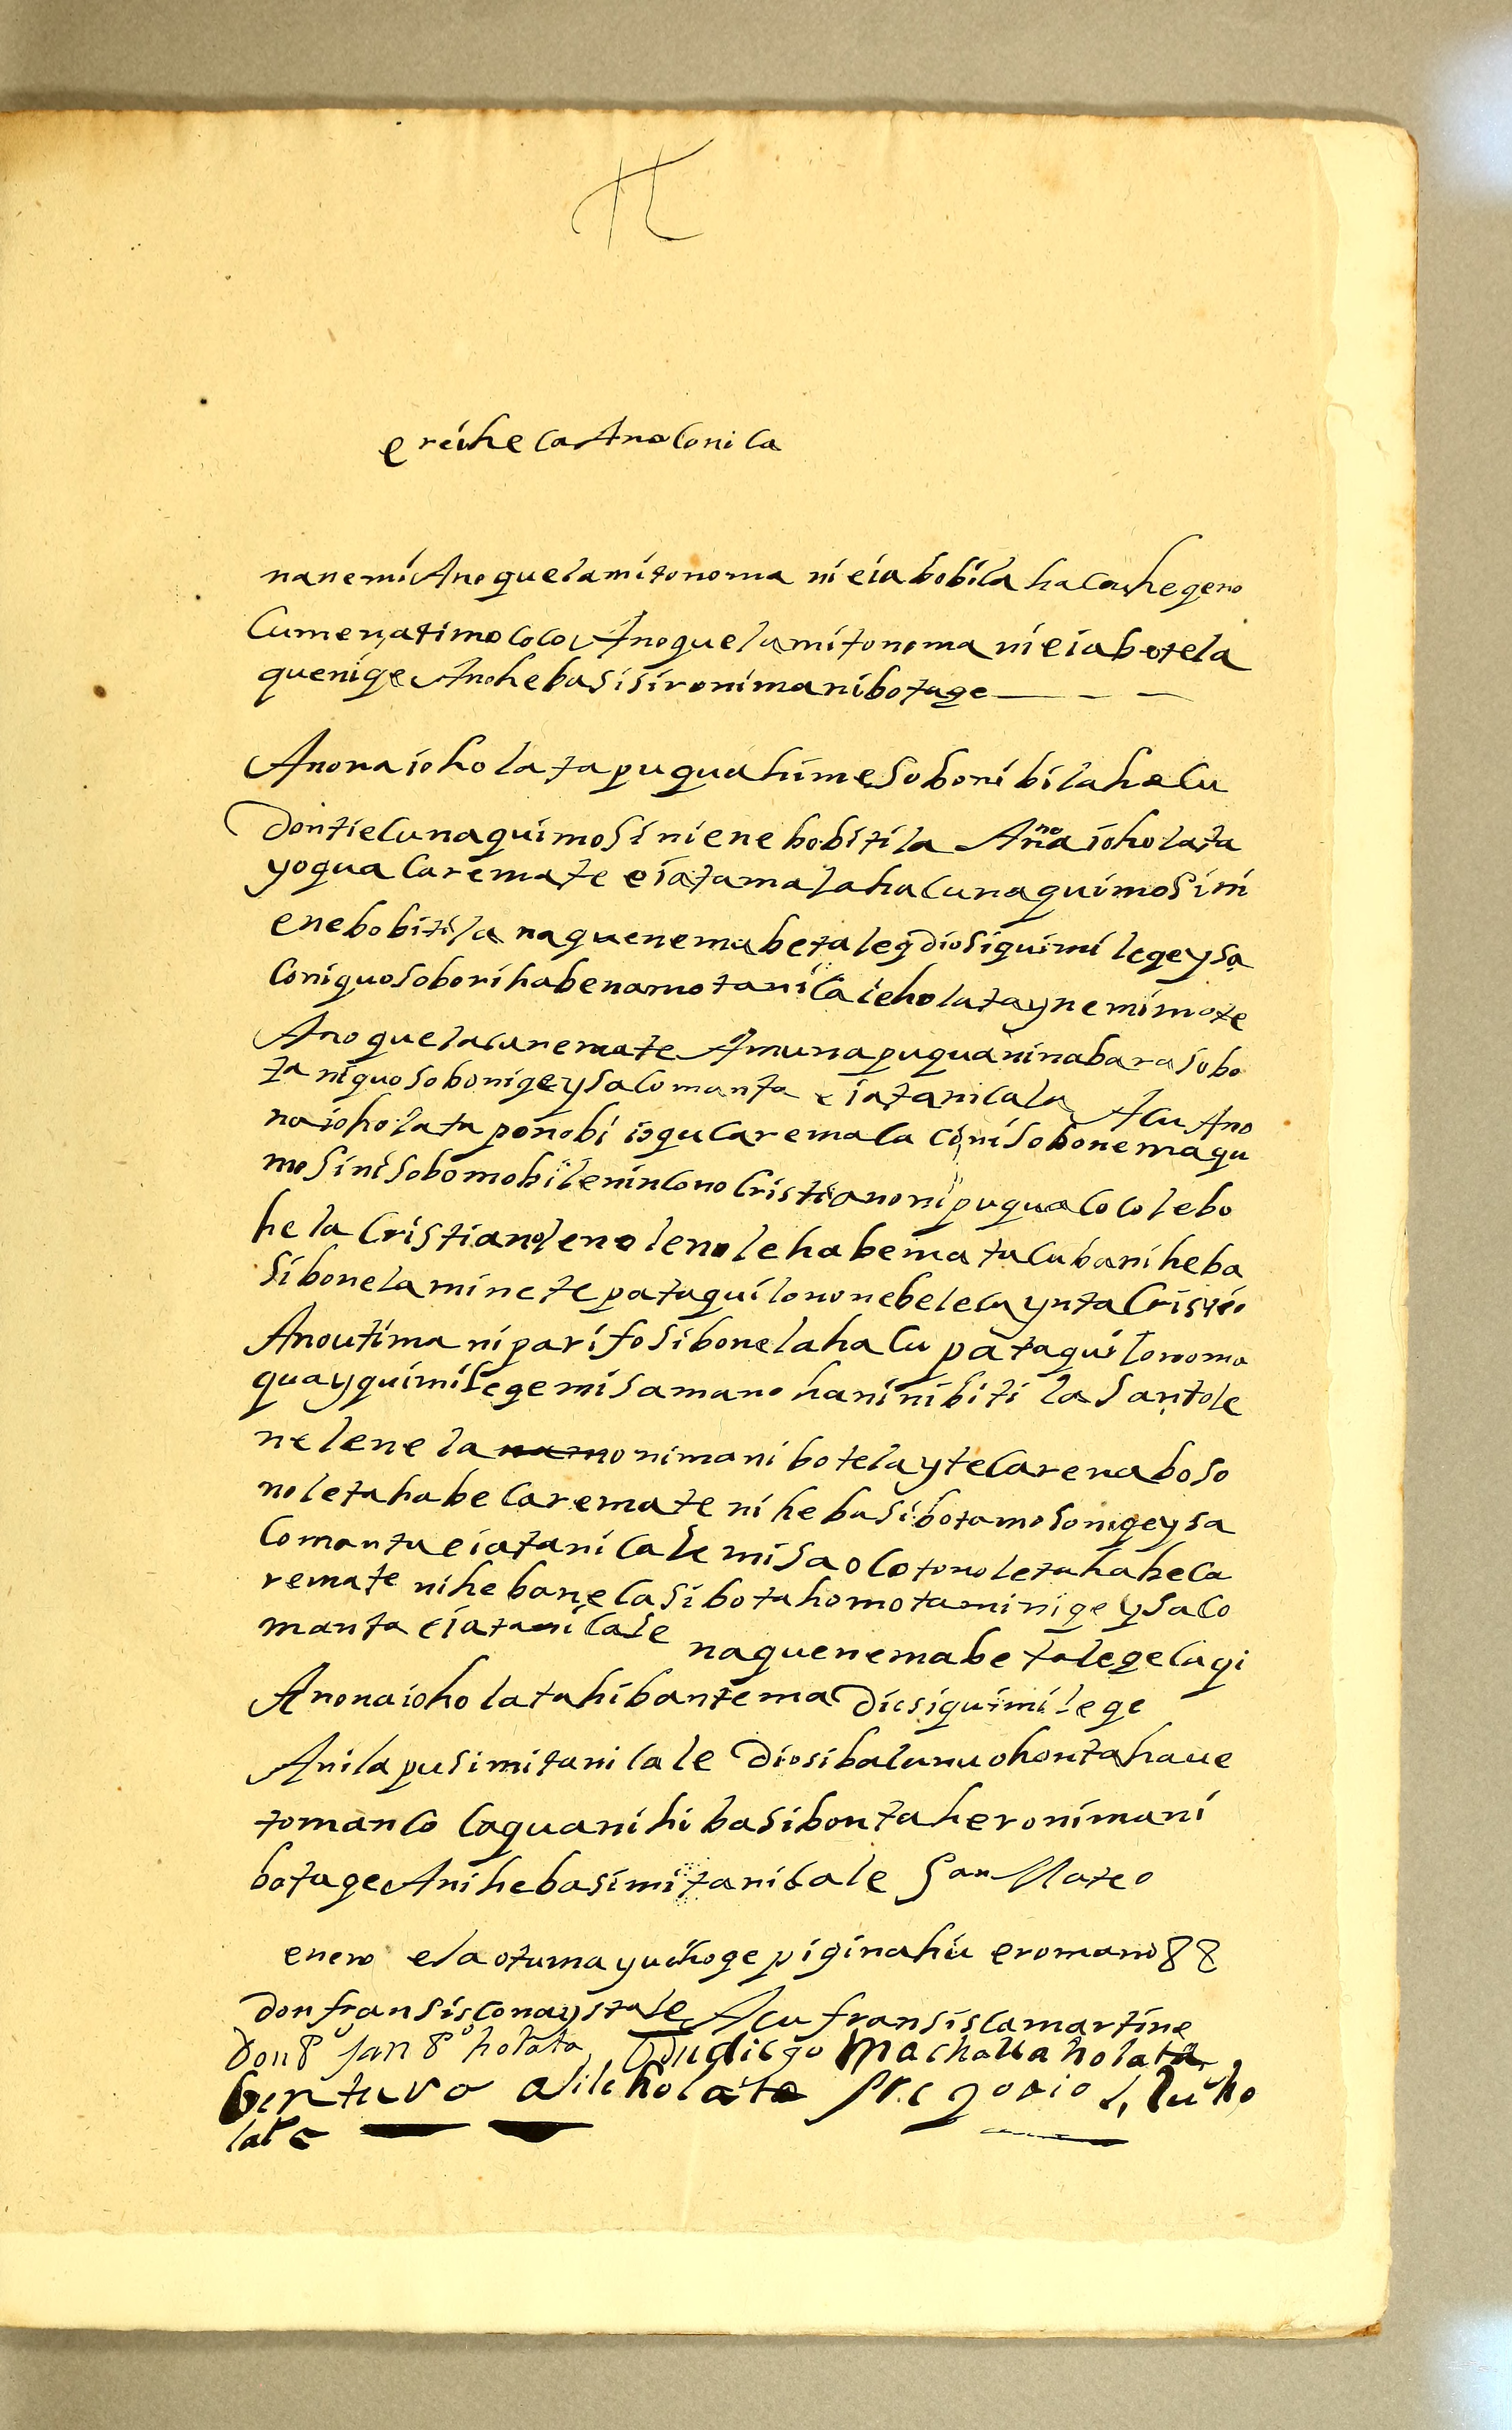 erihe ca Ano Conica
nanemi Anoquelamitonoma nieiabobila hacuhegeno
Cumenatimococo Anoquelamitonoma nieiabotela
quenige Anohebasisironimanibotage
Anonaioholata puquahimesoboni bilahacu
dontiecunaquimosi niene bobitila Anonaioholata
yoqua Caremate eiatamalahacunaquimosini
enebobitila naquenemabetaleq diosiquimilegeysa
Coniquosobonihabenamotanica ieholataynemimate
Anoquelacaremate Amunapuquaninabarasobo
taniquosobonigeysacomanta eiatanicala Acu Ano
naioholata ponobi ioqucaremaca cinisobonemaqu
mosinisobomobilenincono Cristianoni puquacocolebo
hela Cristianolenolenolehabematacubaniheba
sibonelaminete pataquilononebelecaynta Cristio
Anoutimaniparifosibonelahacu pataquilonoma
quayquimilegemisamanohaninibitila Santole
nelenela nimanibotelaytecarenaboso
noletahabecaremate nihebasibotamosonigeysa
Comantaeiatanicale misaolotonoletahabeca
remate nihebanelasibotahomotaminigeysaco
mantaeiatanicale naquenemabetalegelagi
Anonaioholatahibantema diosiquimilege
Anilapusimitanicale Diosibalunuohontahaue
tomanco Caquanihibasibontaheronimani
botage Anihebasimitanicale San Mateo
enero elaotumayuchoge piginahu eromano 88
don fransisconaystale Acu fransiscamartine
don P⁰ san P⁰ holata Dndiego machaua holata
benturo asilcholata gregorio s, luiho
lata